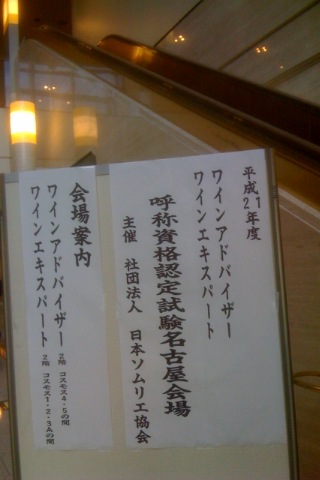 平成21年度
ワインアドバイザー
ワインエキスパート
呼称資格認定試験名古屋会場
主催 社団法人 日本ソムリエ協会
会場案内
ワインアドバイザー 2階 コスモス4・5の間
ワインエキスパート 2階 コスモス1・2・3Aの間